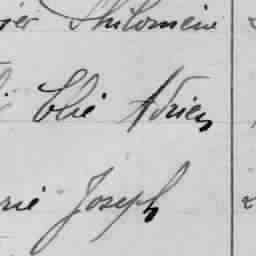 Philomène
Elie Adrien
rie Joseph